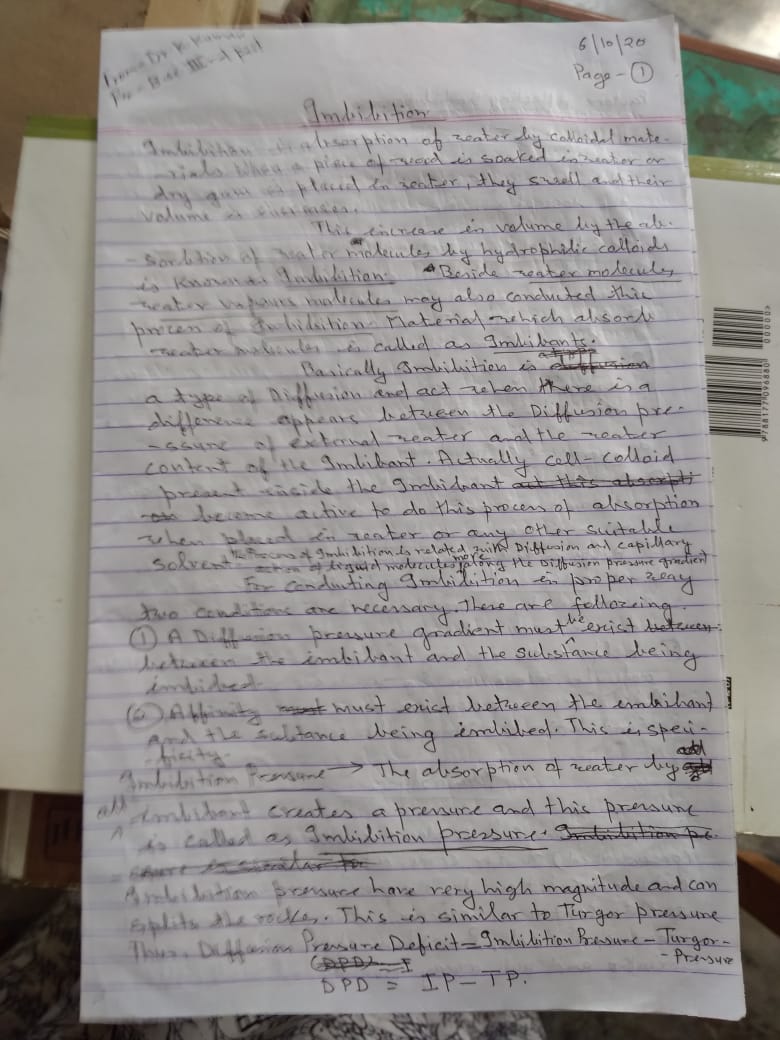 6/10/20
From - Dr. K. Kumar
Page - ①
III part
Imbibition
Imbibition is absorption of water by colloidal mate-
rials. When a piece of wood is soaked in water or
dry gum is placed in water, they swell and their
volume is
This increase in volume by the ab-
- sorbtion of water molecules by hydrophilic colloids
is Known as Imbibition. Beside water molecules
water vapours molecules may also conducted this
process of Imbibition. Material which absorb
water molecules is called as Imbibants.
Basically Imbibition is
a type of Diffusion and act when there is a
difference appears between the Diffusion pre-
- ssure of external water and the water
content of the Imbibant. Actually cell-colloid
present inside the Imbibant act this absorpti
become active to do this process of absorption
when placed in water or any other suitable
solvent. The Process of Imbibition is related with Diffusion and capillary
action of liquid molecules move along the Diffusion pressure gradient
For conducting Imbibition in proper way
two conditions are necessary. These are following.
① A Diffusion pressure gradient must be exist between
between the imbibant and the substance being
imbibed.
② Affinity must must exist between the imbibant
and the subtance being imbibed. This is speci-
- ficity.
Imbibition Pressure → The absorption of water by add
all imbibant creates a pressure and this pressure
is called as Imbibition pressure. Imbibition pre
- ssure is similar to
Imbibition pressure have very high magnitude and can
splits the rocks. This is similar to Turgor pressure
Thus, Diffusion Pressure Deficit = Imbibition Pressure - Turgor-
- Pressure
(DPD) = I
DPD = IP - TP.
9788177096880
00000>